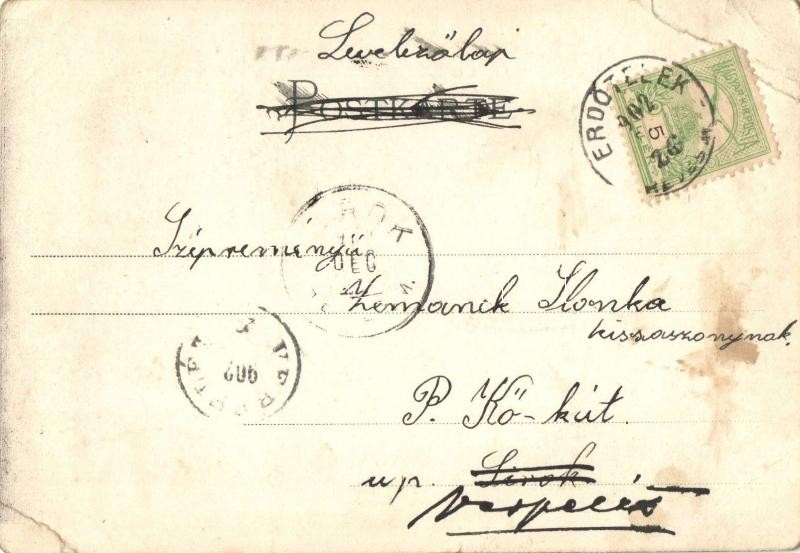 Levelezőlap
POSTKARTE
ERDŐTELEK
902
Szépreményű
Zemanek Ilonka
kissaszonynak.
P. Kő-kút.
up. Sirok
Verpelét